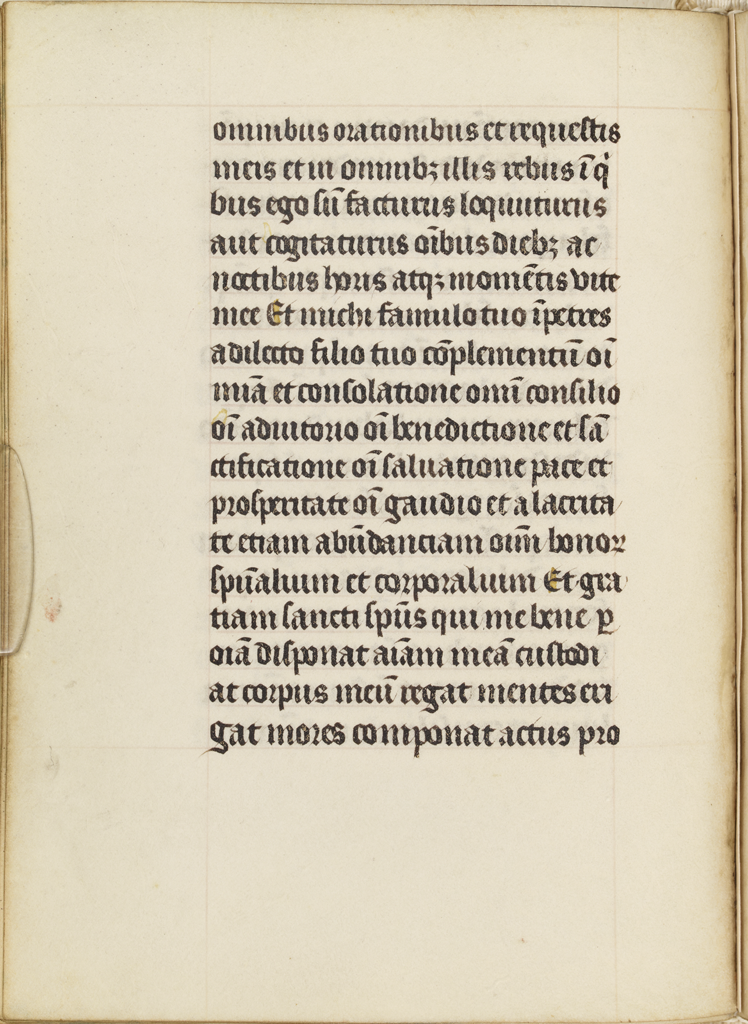 omnibus orationibus et requestis
meis et in omnibꝫ illis rebus ī qͥ
bus ego sū facturus loquuturus
aut cogitaturus oībus diebꝫ ac
noctibus horis atqꝫ momētis vite
mee Et michi famulo tuo īpetres
a dilecto filio tuo cōplementū oī
miā et consolatione omī consilio
oī adiutorio oī benedictione et sā
ctificatione oī saluatione pace et
prosperitate oī gaudio et alacrita
te etiam abūdanciam oīm bonoꝝ
spūalium et corporalium Et gra
tiam sancti spūs qui me bene ꝑ
oīa disponat aīam meā custodi
at corpus meū regat mentes eri
gat mores componat actus pro